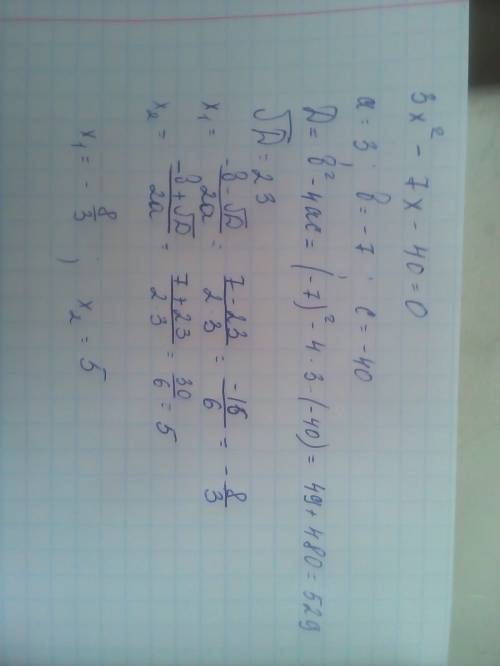 3x² - 7x - 40 = 0
a = 3; b = -7; c = -40
D = b² - 4ac = (-7)² - 4·3-(-40) = 49 + 480 = 529
√D = 23
x₁ = (-b - √D)/2a = (7 - 23)/(2 3) = -16/6 = -8/3
x₂ = (-b + √D)/2a = (7 + 23)/(2 3) = 30/6 = 5
x₁ = -8/3; x₂ = 5